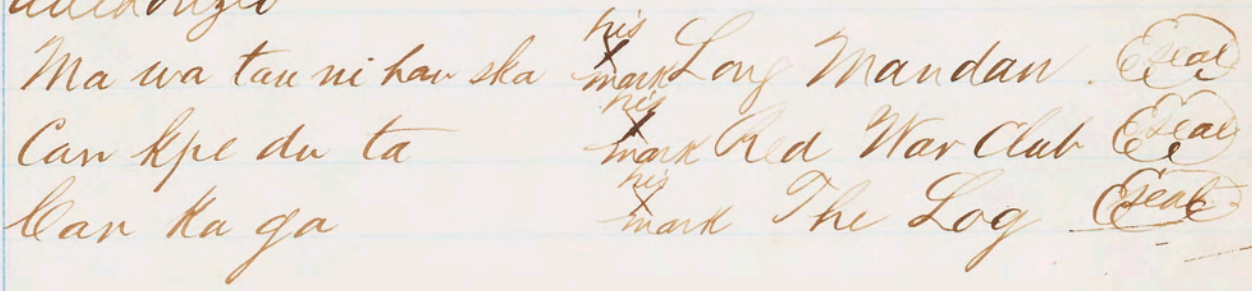 Ma wa tau ni hau ska his x mark Long Mandan. Seal
Can kpe du ta his x mark Red War Club Seal
Can Ka ga his x mark The Log Seal